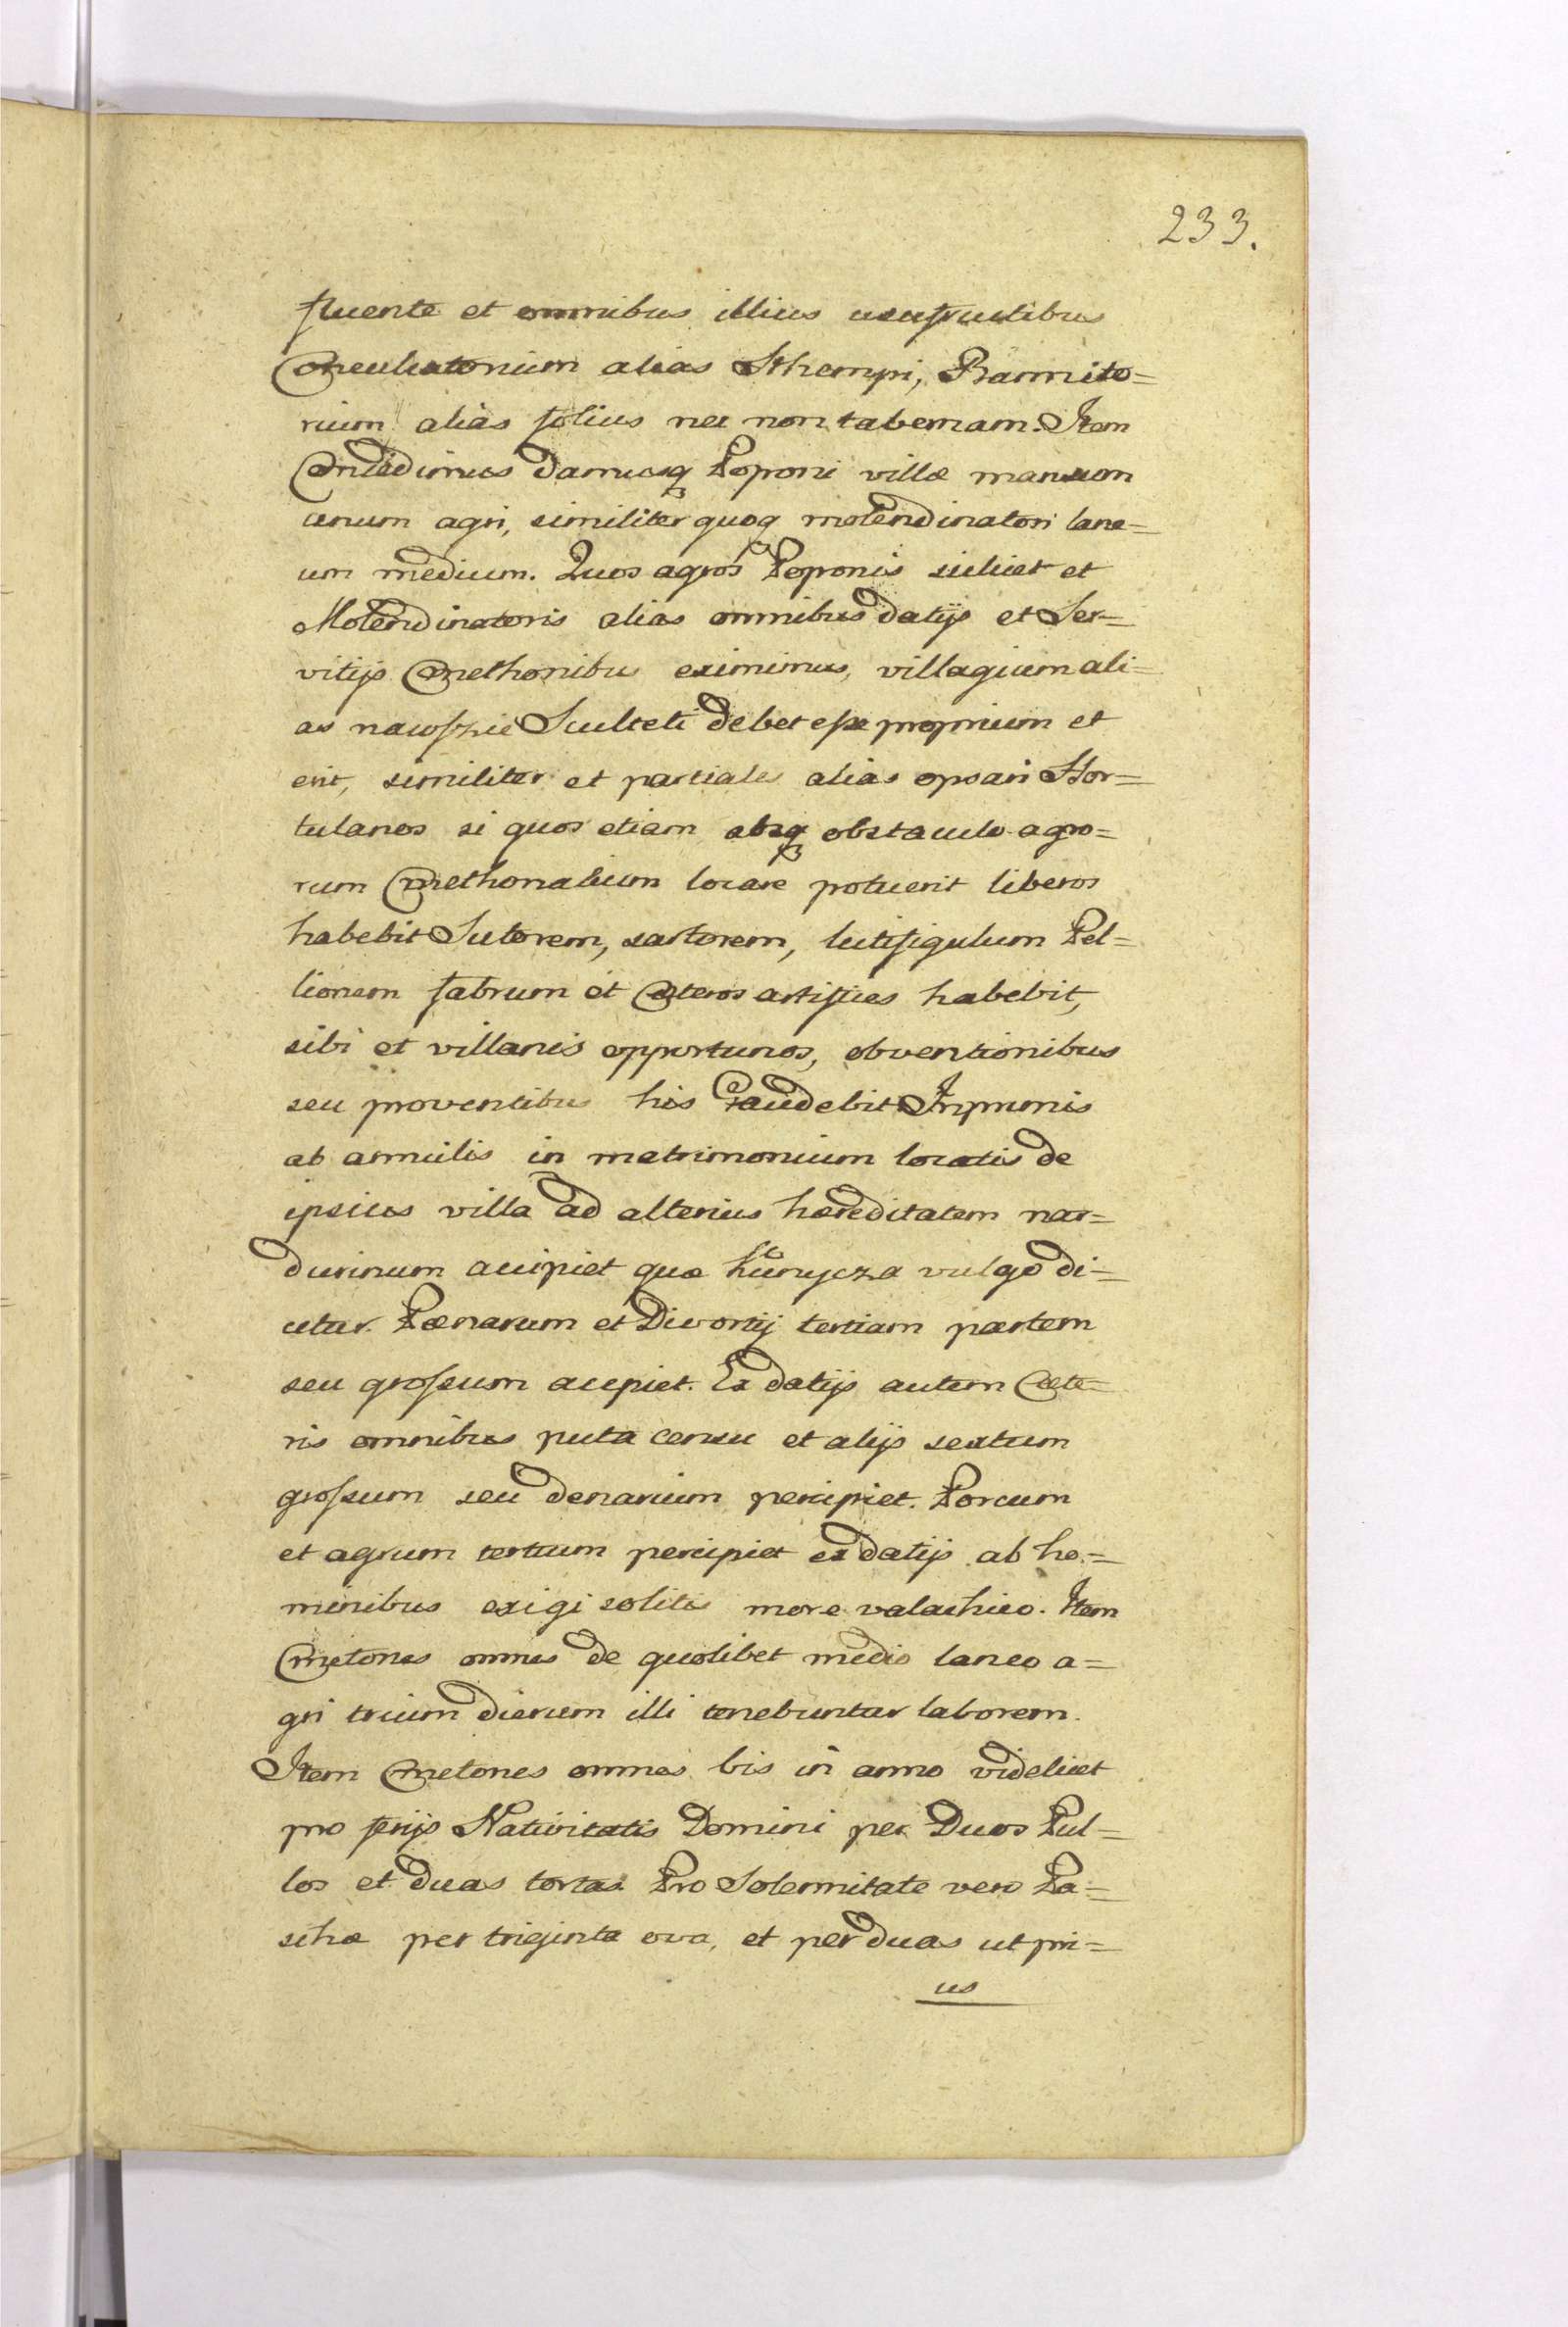 233.
fluente et omnibus illius usufructibus
Conculcatorium alias Sthempi, Pannito=
rium alias folius nec non tabernam. Item
Concedimus damusq Poponi villæ mansum
unum agri, similiter quoq molendinatori lane=
um medium. Quos agros Poponis scilicet et
Molendinatoris alias omnibus datijs et Ser=
vitijs Cmethonibus eximimus, villagium ali=
as nawszie Sculteti debet esse proprium et
erit, similiter et partiales alias opsari Hor=
tulanos si quos etiam absq obstaculo agro=
rum Cmethonalium locare potuerit liberos
habebit Sutorem, sartorem, lutifigulum Pel=
lionem fabrum et Cæteros artifices habebit,
sibi et villanis opportunos, obventionibus
seu proventibus his Gaudebit Inprimis
ab ancilis in matrimonium locatis de
ipsius villa ad alterius hæreditatem nar=
durinum accipiet quæ kunycza vulgo di=
citur. Pænarum et Divortij tertiam partem
seu grossum acepiet. Ex datijs autem Cæte=
ris omnibus puta censu et alijs sextum
grossum seu denarium percipiet. Porcum
et agnum tertium percipiet ex datijs ab ho=
minibus exigi solitis more valachico. Item
Cmetones omnes de quolibet medio laneo a=
gri trium dierum illi tenebuntur laborem.
Item Cmetones omnes bis in anno videlicet
pro ferijs Nativitatis Domini per Duos Pul=
los et duas tortas Pro Solemnitate vero Pa=
schæ per triginta ova, et per duas ut pri=
us